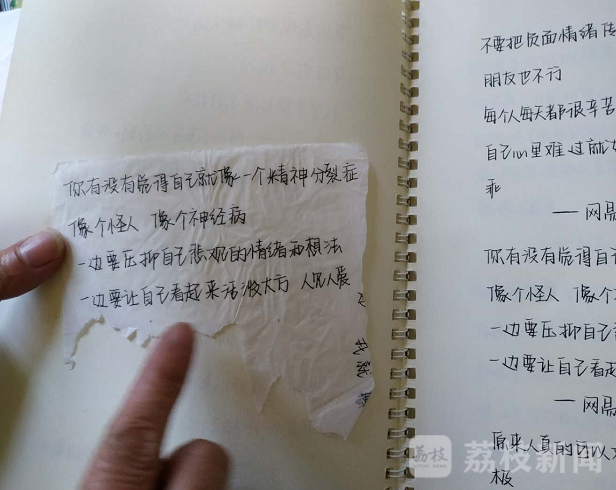 你有没有觉得自己就像一个精神分裂症
像个怪人 像个神经病
一边要压抑自己悲观的情绪和想法
一边要让自己看起来活泼大方 人见人爱
不要把负面情绪传
朋友也不行
每个人每天都很辛苦
自己心里难过就
乖
——网易
你有没有觉得自己
像个怪人 像个
一边要压抑自己
一边要让自己看起
——网易
原来人真的可以
极
荔枝
荔枝新闻